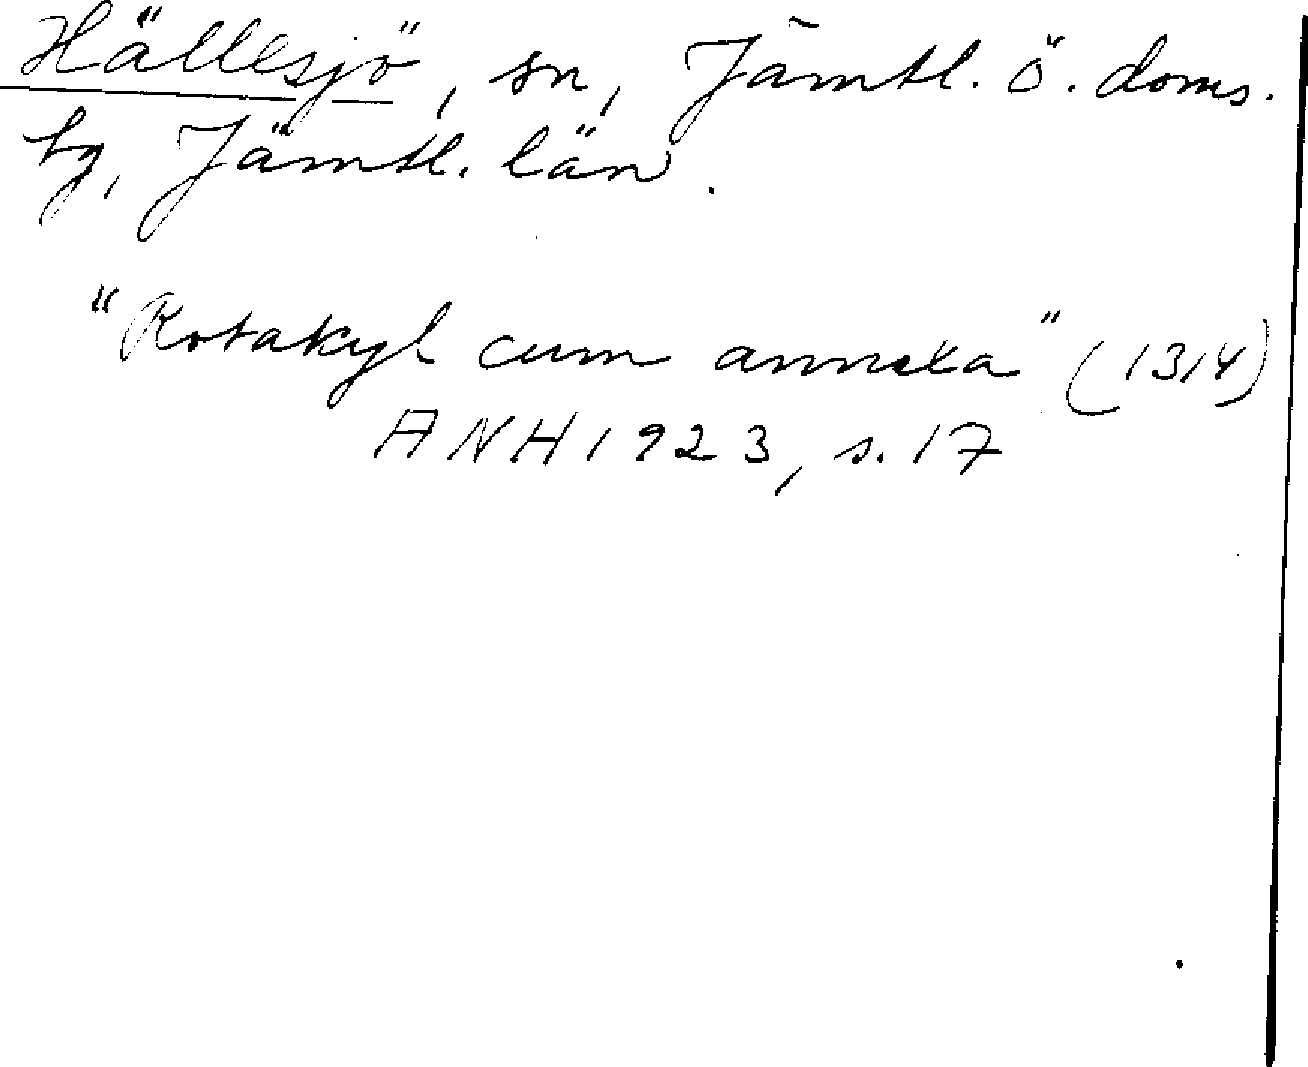 Hällesjö, sn, Jämtl. ö. doms.
hg, Jämtl. län.
"Rotakyl cum annexa" (1314)
ANH 1923, s. 17